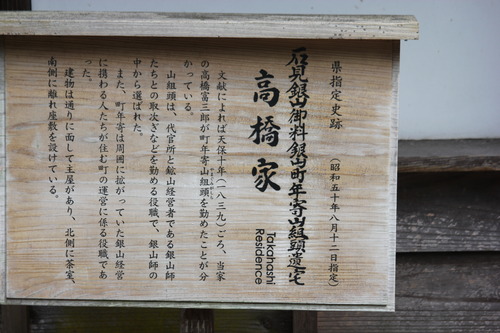 県指定史跡 (昭和五十年八月十二日指定)
石見銀山御料銀山町年寄山組頭遺宅
高橋家
Takahashi
Residence
文献によれば天保十年(一八三九)ごろ、当家
の高橋富三郎が町年寄山組頭を勤めたことが分
かっている。
山組頭は、代官所と鉱山経営者である銀山師
たちとの取次ぎなどを勤める役職で、銀山師の
中から選ばれた。
また、町年寄は周囲に拡がっていた銀山経営
に携わる人たちが住む町の運営に係る役職であ
った。
建物は通りに面して主屋があり、北側に茶室、
南側に離れ座敷を設けている。